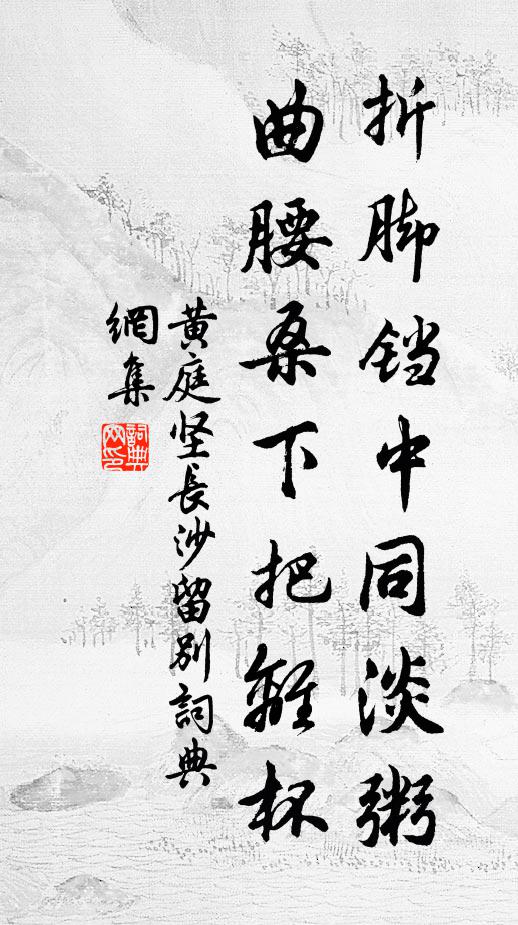 折脚铛中同淡粥
曲腰桑下把離杯
黄庭坚長沙留别詞典
網集
詞典
网印